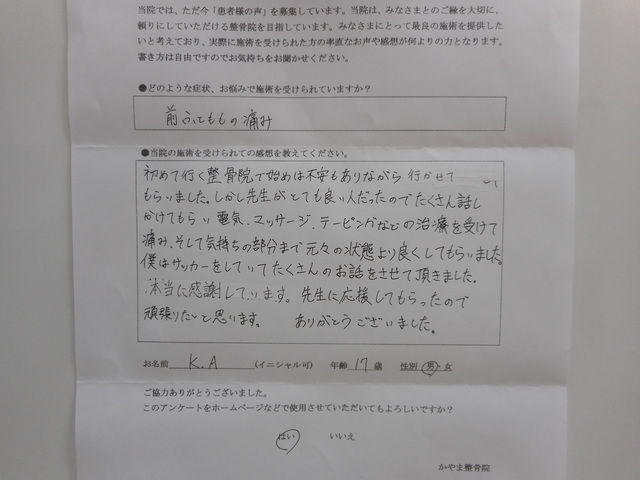 当院では、ただ今「患者様の声」を募集しています。当院は、みなさまとのご縁を大切に、
頼りにしていただける整骨院を目指しています。みなさまにとって最良の施術を提供した
いと考えており、実際に施術を受けられた方の率直なお声や感想が何よりの力となります。
書き方は自由ですのでお気持ちをお聞かせください。
●どのような症状、お悩みで施術を受けられていますか?
前ふとももの痛み
●当院の施術を受けられての感想を教えてください。
初めて行く整骨院で始めは不安もありながら行かせて
もらいました。しかし先生がとても良い人だったのでたくさん話し
かけてもらい電気、マッサージ、テーピングなどの治療を受けて
痛み、そして気持ちの部分まで元々の状態より良くしてもらいました。
僕はサッカーをしていてたくさんのお話をさせて頂きました。
本当に感謝しています。先生に応援してもらったので
頑張りたいと思います。 ありがとうございました。
お名前 K.A (イニシャル可) 年齢 17 歳 性別 男・女
ご協力ありがとうございました。
このアンケートをホームページなどで使用させていただいてもよろしいですか?
はい いいえ
かやま整骨院